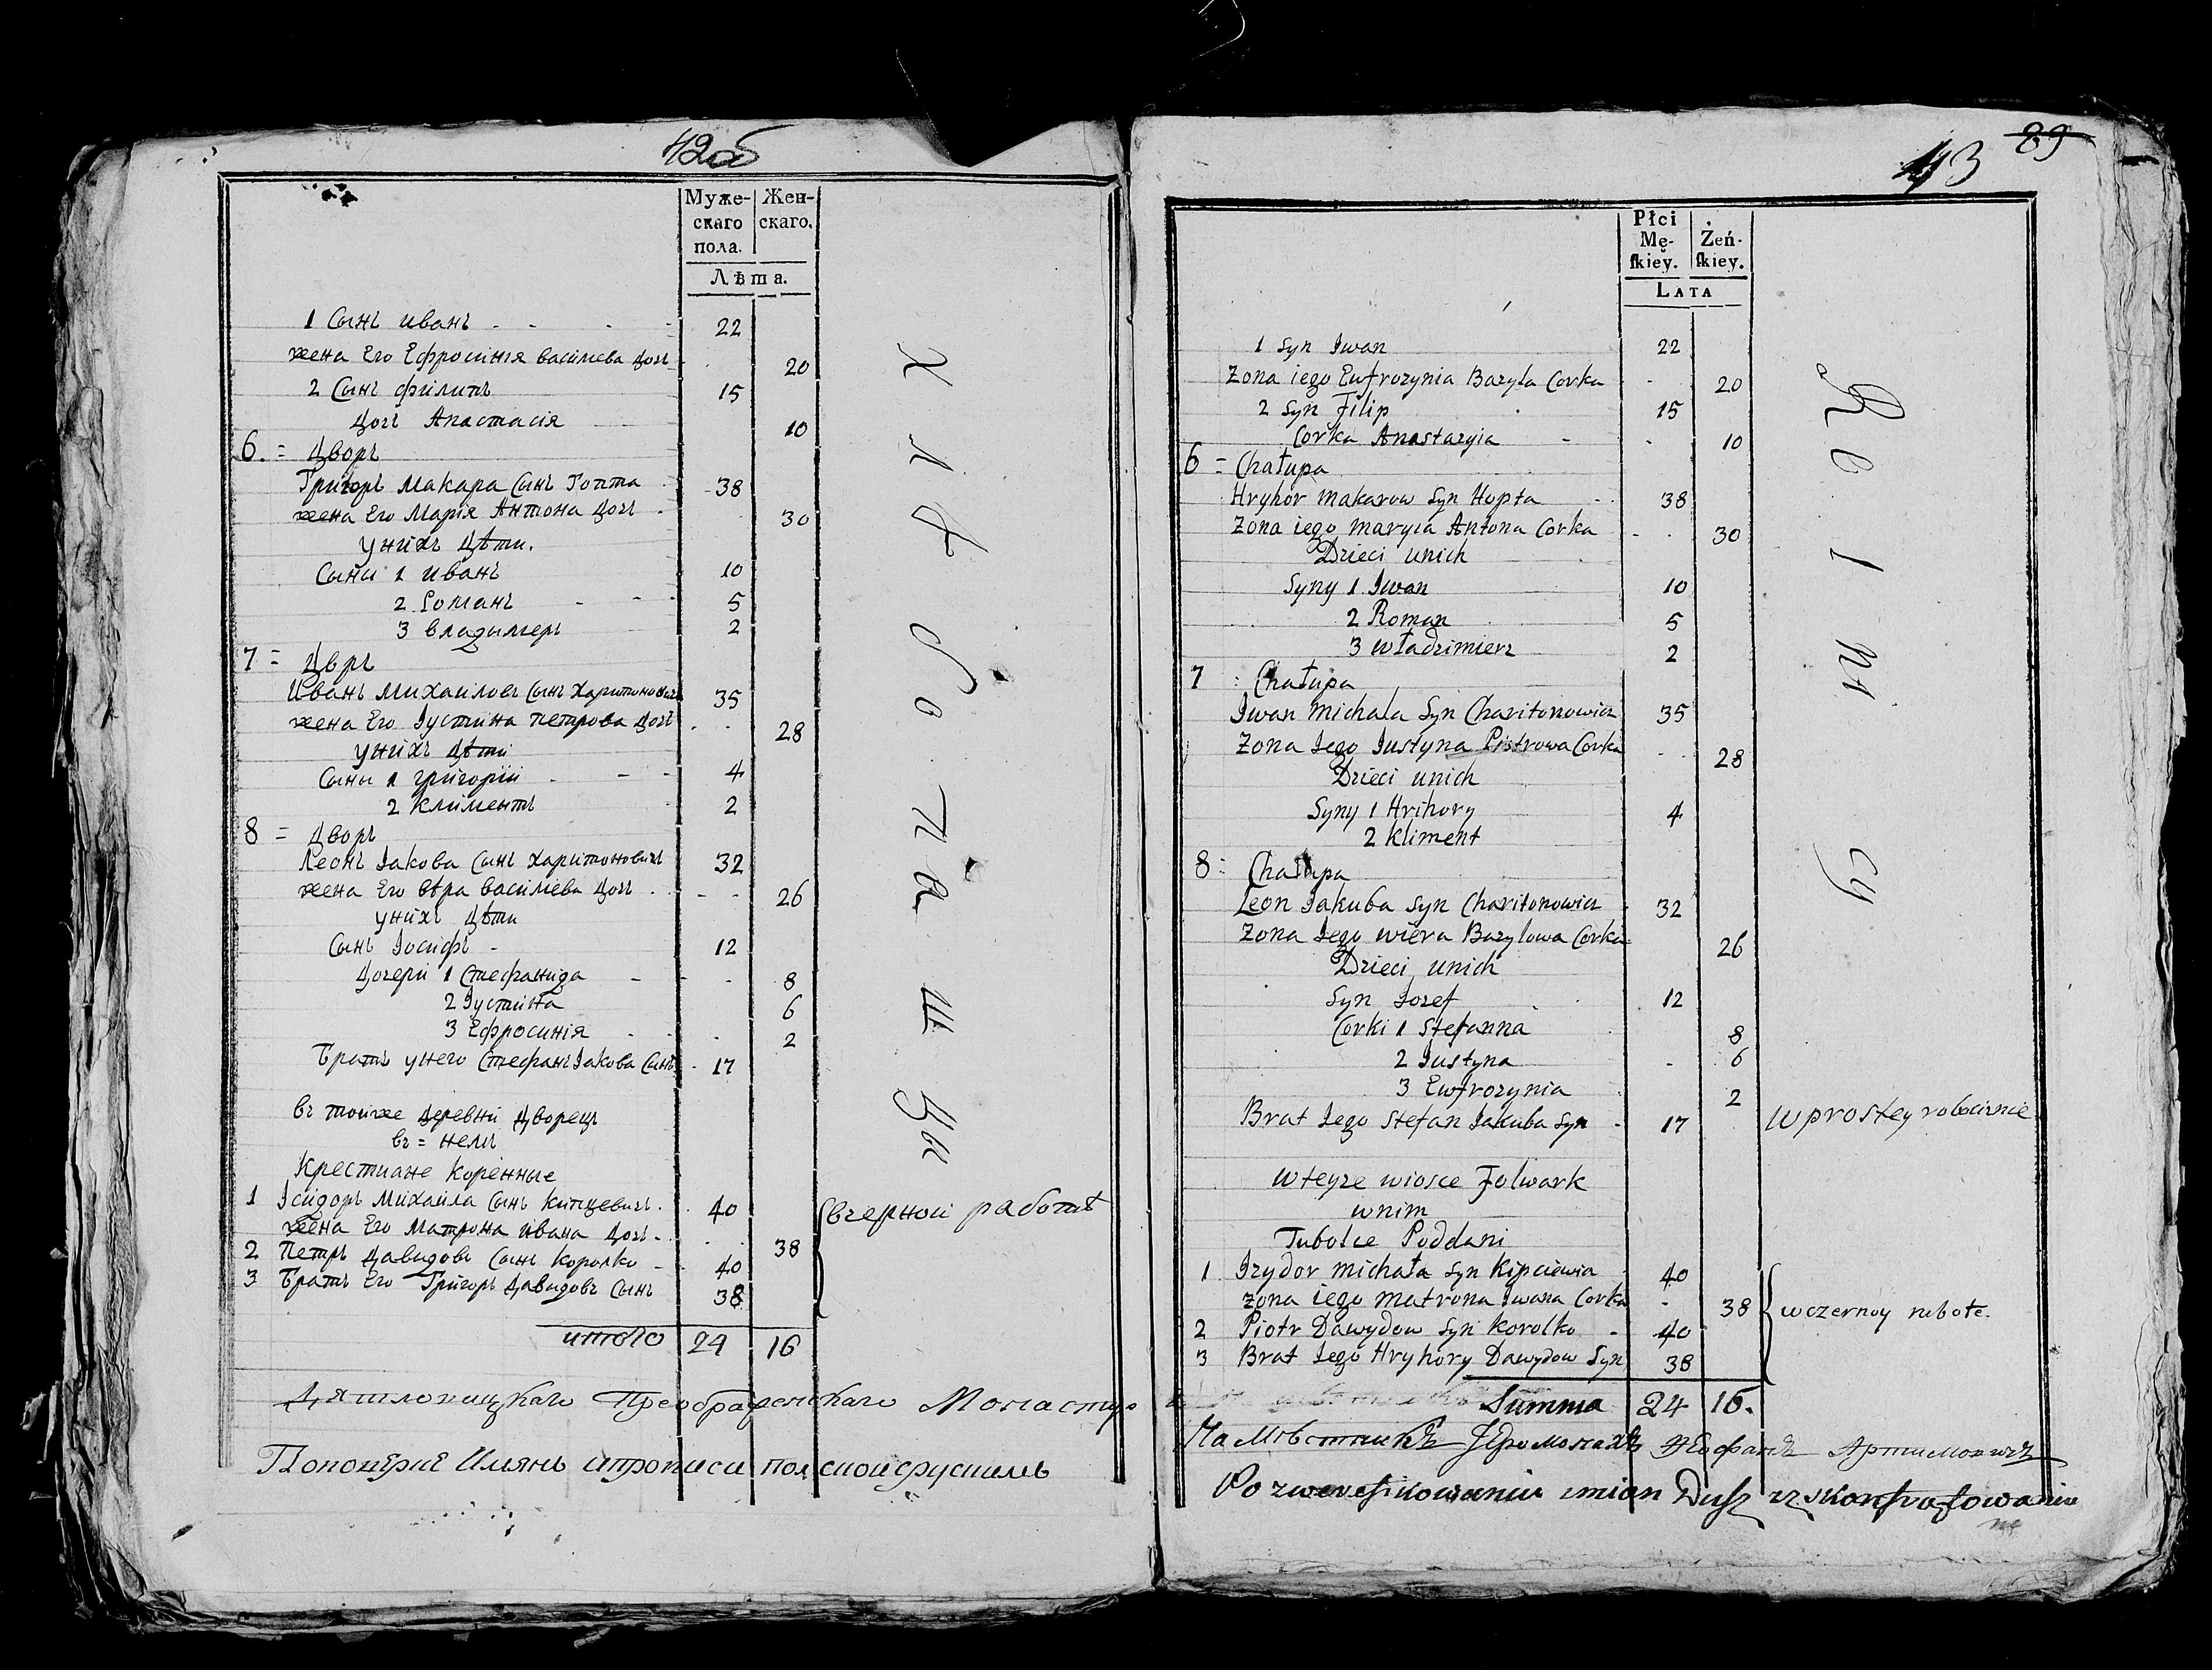 42об
Муже-
скаго
пола.
Жен-
скаго.
Лѣта.
1 Сынъ иванъ 22
жена Его Ефросиния василиева дочь 20
2 Сынъ филипъ 15
дочь Анастасія 10
6. = Дворъ
Григоръ Макара Сынъ Гопта 38
жена Его Марія Антона дочь 30
у нихъ дѣти.
Сыны 1 иванъ 10
2 Романъ 5
3 владимеръ 2
7 = Двръ
Иванъ Михайловъ Сынъ Харитоновичъ 35
жена Его Іустина петрова дочь 28
у нихъ дѣти
Сыны 1 григорій 4
2 климентъ 2
8 = Дворъ
Леонъ Іакова Сынъ Харитоновичъ 32
жена Его вѣра василиева дочь 26
у нихъ дѣти
Сынъ Іосифъ 12
дочери 1 Стефанида 8
2 Іустина 6
3 Ефросинія 2
Братъ у него Стефанъ Іакова Сынъ 17
въ тойже деревни дворецъ
въ = немъ
Крестиане коренные
1 Ісидоръ Михайла Сынъ Кипцевичъ. 40
жена Его Матрона ивана дочь 38
2 Петръ давидовъ Сынъ королко 40
3 Братъ Его Григоръ давидовъ Сынъ 38
въ черной работѣ
итого 24 16
Хлѣбопашцы
Дятловицкаго Преображенскаго Монастыр
По поверке Имянъ ипрописи полской
43 89
Płci
Mę-
skiey.
Żeń-
skiey.
LATA
1 Syn Iwan 22
Zona iego Eufrozynia Bazyla Corka 20
2 Syn Filip 15
Corka Anastazyia 10
6 = Chałupa
Hryhor Makarow Syn Hopta 38
Zona iego Maryia Antona Corka 30
Dzieci unich
Syny 1 Iwan 10
2 Roman 5
3 Władzimierz 2
7 : Chałupa
Iwan Michala Syn Charitonowicz 35
Zona Iego Iustyna Piotrowa Corka 28
Dzieci unich
Syny 1 Hrihory 4
2 Kliment
8 : Chałupa
Leon Iakuba Syn Charitonowicz 32
Zona Iego wiera Bazylowa Corka 26
Dzieci unich
Syn Iozef 12
Corki 1 Stefanna 8
2 Iustyna 6
3 Ewfrozynia 2
Brat Iego Stefan Iakuba Syn 17 w prostey robociznie
wteyze wiosce Folwark
wnim
Tubolce Poddani
1 Izydor Michała Syn Kipciewicz 40
zona iego Matrona Iwana Corka 38
2 Piotr Dawydow Syn Korolko 40
3 Brat Iego Hryhory Dawydow Syn 38
w czernoy rabote.
Summa 24 16.
Rolnicy
Намѣстникъ Іеромонахъ Феофанъ Артимовичъ
Po zweryfikowaniu imion Dusz y zkonfrontowaniu